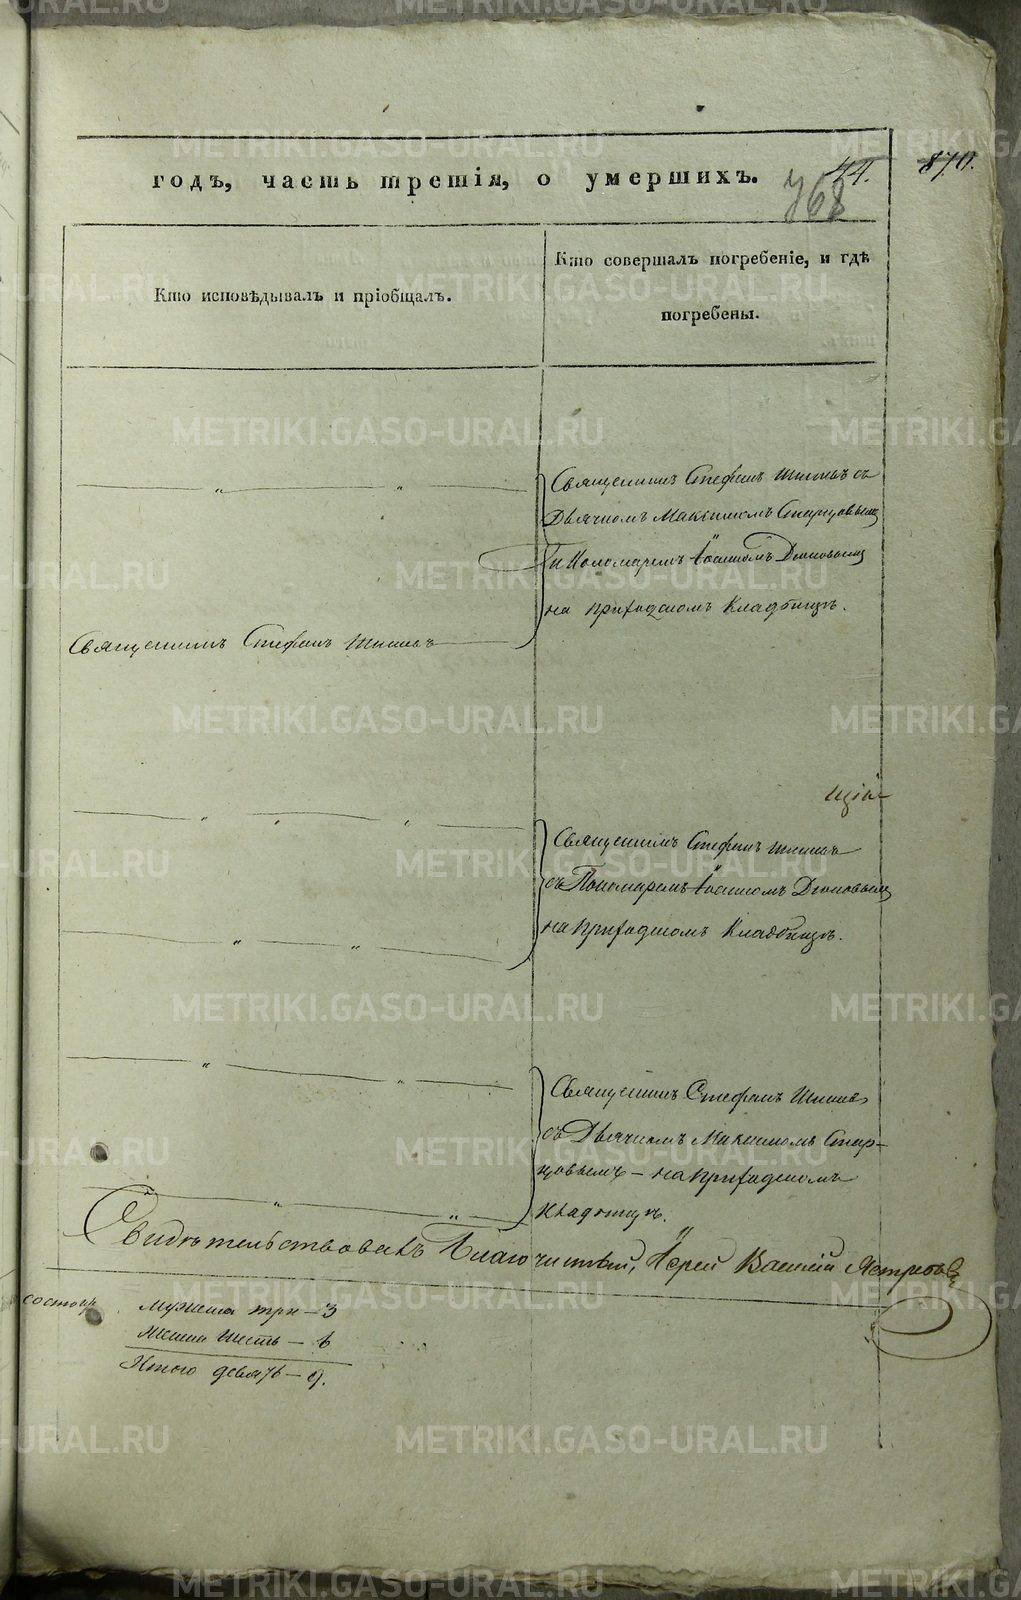 METRIKI.GASO-URAL.RU
44.
870.
годъ, часть третія, о умершихъ.
768
Кто исповѣдывалъ и пріобщалъ.
Кто совершалъ погребеніе, и гдѣ
погребены.
Священникъ Стефанъ Шишевъ съ
Дьячкомъ Максимомъ Старцовымъ
и Пономаремъ Іоанномъ
на приходскомъ Кладбищѣ.
Священникъ Стефанъ Шишевъ
Священникъ Стефанъ Шишевъ
съ Пономаремъ Іоанномъ
на приходскомъ Кладбищѣ.
Священникъ Стефанъ Шишевъ
съ Дьячкомъ Максимомъ Стар-
цовымъ – на приходскомъ
Кладбищѣ.
Свидѣтельствовалъ Благочинный, Іерей Василій Ястребовъ
мужеска три – 3
женска шесть – 6
Итого девять – 9.